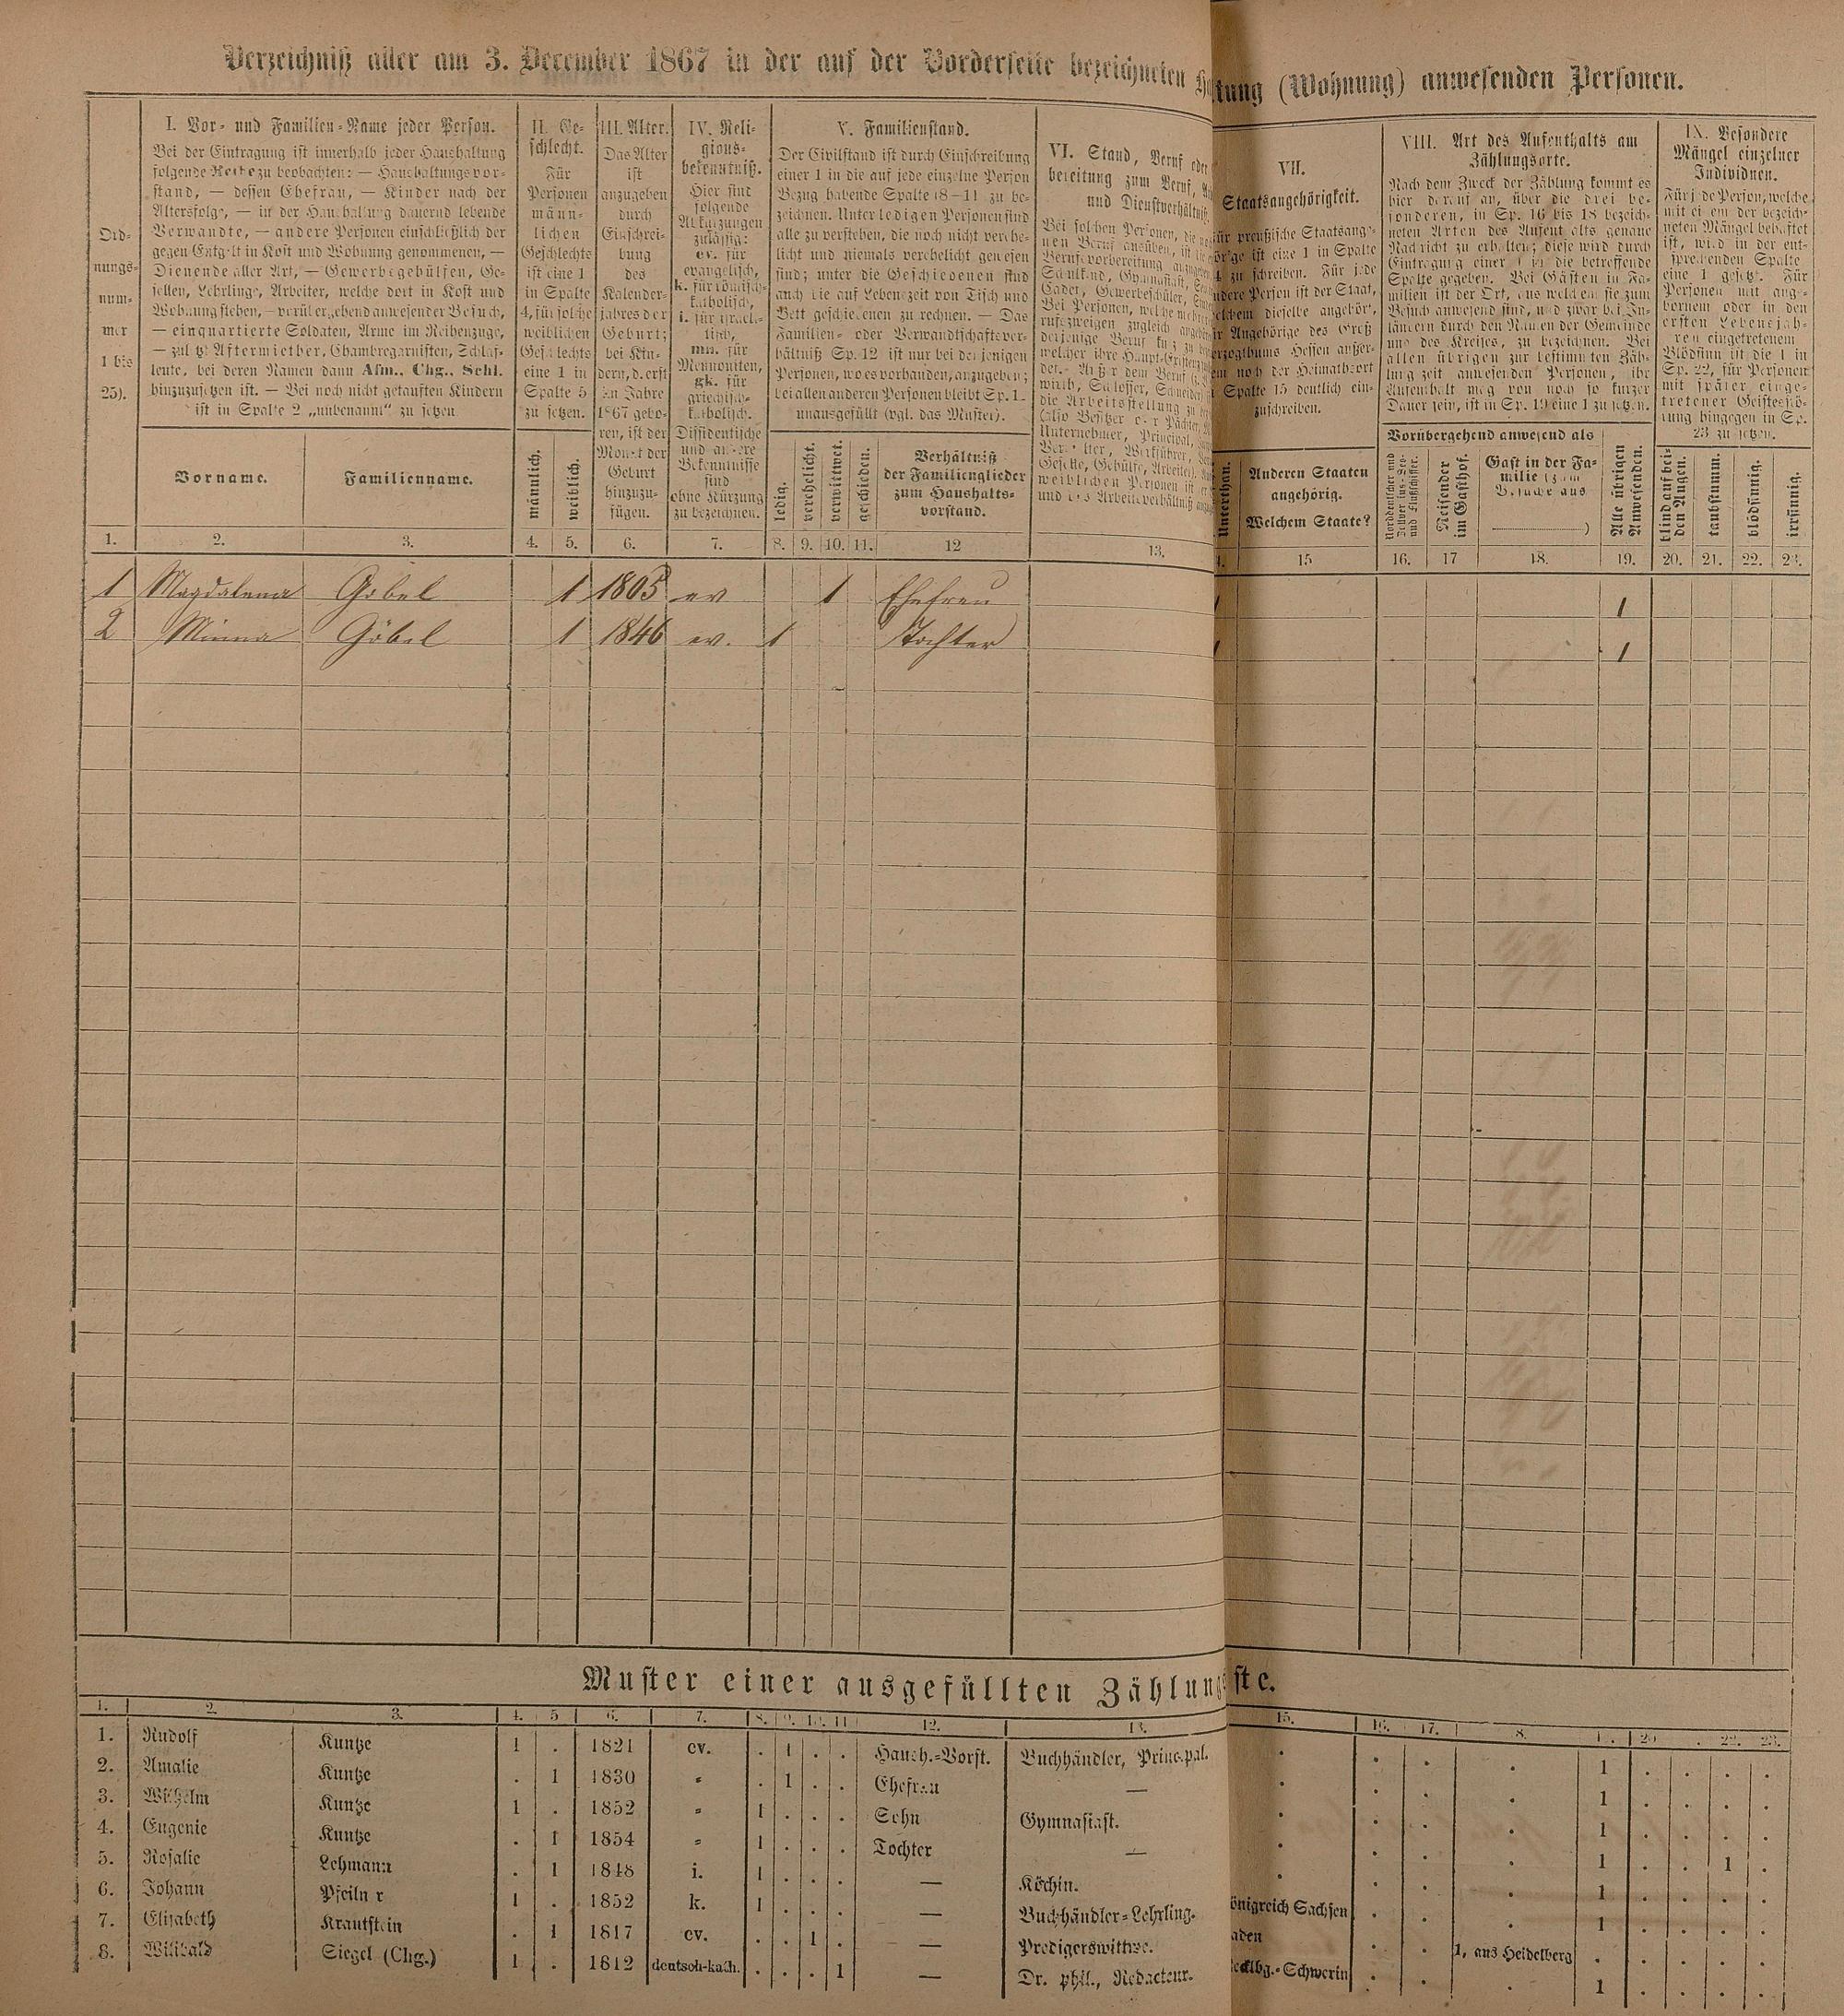 Verzeichniß aller am 3. December 1867 in der auf der Vorderseite bezeichneten
tung (Wohnung) anwesenden Personen.
Ord-
nungs-
num-
mer
1 bis
25).
I. Vor- und Familien-Name jeder Person.
Bei der Eintragung ist innerhalb jeder Haushaltung
folgende Reihe zu beobachten: — Haushaltungsvor-
stand, — dessen Ehefrau, — Kinder nach der
Altersfolge, — in der Haushaltung dauernd lebende
Verwandte, — andere Personen einschließlich der
gegen Entgelt in Kost und Wohnung genommenen, —
Dienende aller Art, — Gewerbegehülfen, Ge-
sellen, Lehrlinge, Arbeiter, welche dort in Kost und
Wohnung stehen, — vorübergehend anwesender Besuch,
— einquartierte Soldaten, Arme im Reihenzuge,
— zuletzt Aftermiether, Chambregarnisten, Schlaf-
leute, bei deren Namen dann Afm., Chg., Schl.
hinzuzusetzen ist. — Bei noch nicht getauften Kindern
ist in Spalte 2 „unbenannt" zu setzen.
Vorname.
Familienname.
II. Ge-
schlecht.
Für
Personen
männ-
lichen
Geschlechts
ist eine 1
in Spalte
4, für solche
weiblichen
Geschlechts
eine 1 in
Spalte 5
zu setzen.
männlich.
weiblich.
III. Alter.
Das Alter
ist
anzugeben
durch
Einschrei-
bung
des
Kalender-
jahres der
Geburt;
bei Kin-
dern, d. erst
im Jahre
1867 gebo-
ren, ist der
Monat der
Geburt
hinzuzu-
fügen.
IV. Reli-
gions-
bekenntniß.
Hier sind
folgende
Abkürzungen
zulässig:
ev. für
evangelisch,
k. für römisch-
katholisch,
i. für israeli-
tisch,
mn. für
Mennoniten,
gk. für
griechisch-
katholisch.
Dissidentische
und andere
Bekenntnisse
sind
ohne Kürzung
zu bezeichnen.
V. Familienstand.
Der Civilstand ist durch Einschreibung
einer 1 in die auf jede einzelne Person
Bezug habende Spalte (8—11 zu be-
zeichnen. Unter ledigen Personen sind
alle zu verstehen, die noch nicht verehe-
licht und niemals verehelicht gewesen
sind; unter die Geschiedenen sind
auch die auf Lebenszeit von Tisch und
Bett geschiedenen zu rechnen. — Das
Familien- oder Verwandtschaftsver-
hältniß Sp. 12 ist nur bei denjenigen
Personen, wo es vorhanden, anzugeben;
bei allen anderen Personen bleibt Sp. 1
unausgefüllt (vgl. das Muster).
ledig.
verehelicht.
verwittwet.
geschieden.
Verhältniß
der Familienglieder
zum Haushalts-
vorstand.
VI. Stand, Beruf oder
bereitung zum Beruf,
und Dienstverhältniß
Bei solchen Personen, die
nen Beruf ausüben, ist
Berufsvorbereitung
Schulkind, Gymnasiast,
Cadet, Gewerbeschüler,
Bei Personen, welche
rufszweigen zugleich
derjenige Beruf
welcher ihre Haupt-
VII.
Staatsangehörigkeit.
für preußische Staatsang-
hörige ist eine 1 in Spalte
zu schreiben. Für jede
andere Person ist der Staat,
welchem dieselbe angehört,
Angehörige des Groß
herzogthums Hessen außer-
dem noch der Heimathsort
Spalte 15 deutlich ein-
zuschreiben.
Unterthan.
Anderen Staaten
angehörig.
Welchem Staate?
VIII. Art des Aufenthalts am
Zählungsorte.
Nach dem Zweck der Zählung kommt es
hier darauf an, über die drei be-
sonderen, in Sp. 16 bis 18 bezeich-
neten Arten des Aufenthalts genaue
Nachricht zu erhalten; diese wird durch
Eintragung einer 1 in die betreffende
Spalte gegeben. Bei Gästen in Fa-
milien ist der Ort, aus welchem sie zum
Besuch anwesend sind, und zwar bei In-
ländern durch den Namen der Gemeinde
und des Kreises, zu bezeichnen. Bei
allen übrigen zur bestimmten Zäh-
lungszeit anwesenden Personen, ihr
Aufenthalt mag von noch so kurzer
Dauer sein, ist in Sp. 19 eine 1 zu setzen.
Vorübergehend anwesend als
Reisender
im Gasthof.
Gast in der Fa-
milie (zum
Besuche aus
)
Alle übrigen
Anwesenden.
IX. Besondere
Mängel einzelner
Individuen.
Für jede Person, welche
mit einem der bezeich-
neten Mängel behaftet
ist, wird in der ent-
sprechenden Spalte
eine 1 gesetzt. Für
Personen mit ange-
bornem oder in den
ersten Lebensjah-
ren eingetretenem
Blödsinn ist die 1 in
Sp. 22, für Personen
mit später einge-
tretener Geistesstö-
rung hingegen in Sp.
23 zu setzen.
blind auf bei-
den Augen.
taubstumm.
blödsinnig.
irrsinnig.
1. 2. 3. 4. 5. 6. 7. 8. 9. 10. 11. 12 13. 15 16. 17 18. 19. 20. 21. 22. 23.
1 Magdalena Gobel 1 1805 ev 1 Ehefrau 1
2 Minna Göbel 1 1846 ev. 1 Tochter 1
Muster einer ausgefüllten Zählungs
ste.
1. 2. 3. 4. 5 6. 7. 8. 9. 10. 11 12. 13. 15. 16. 17. 8. 1 . 20 . 22. 23.
1. Rudolf Kuntze 1 . 1821 ev. . 1 . . Haush.-Vorst. Buchhändler, Principal. . . . . 1 . . . .
2. Amalie Kuntze . 1 1830 " . 1 . . Ehefrau — . . . . 1 . . . .
3. Wilhelm Kuntze 1 . 1852 " 1 . . . Sohn Gymnasiast. . . . . 1 . . . .
4. Eugenie Kuntze . 1 1854 " 1 . . . Tochter — . . . . 1 . . 1 .
5. Rosalie Lehmann . 1 1848 i. 1 . . . — Köchin. . . . . 1 . . . .
6. Johann Pfeiln r 1 . 1852 k. 1 . . . — Buchhändler-Lehrling. önigreich Sachsen . . . 1 . . . .
7. Elisabeth Krautstein . 1 1817 ev. . . 1 . — Predigerswittwe. aden . . 1, aus Heidelberg . . . . .
8. Wilibald Siegel (Chg.) 1 . 1812 deutsch-kath. . . . 1 — Dr. phil., Redacteur. ecklbg.-Schwerin . . . 1 . . . .